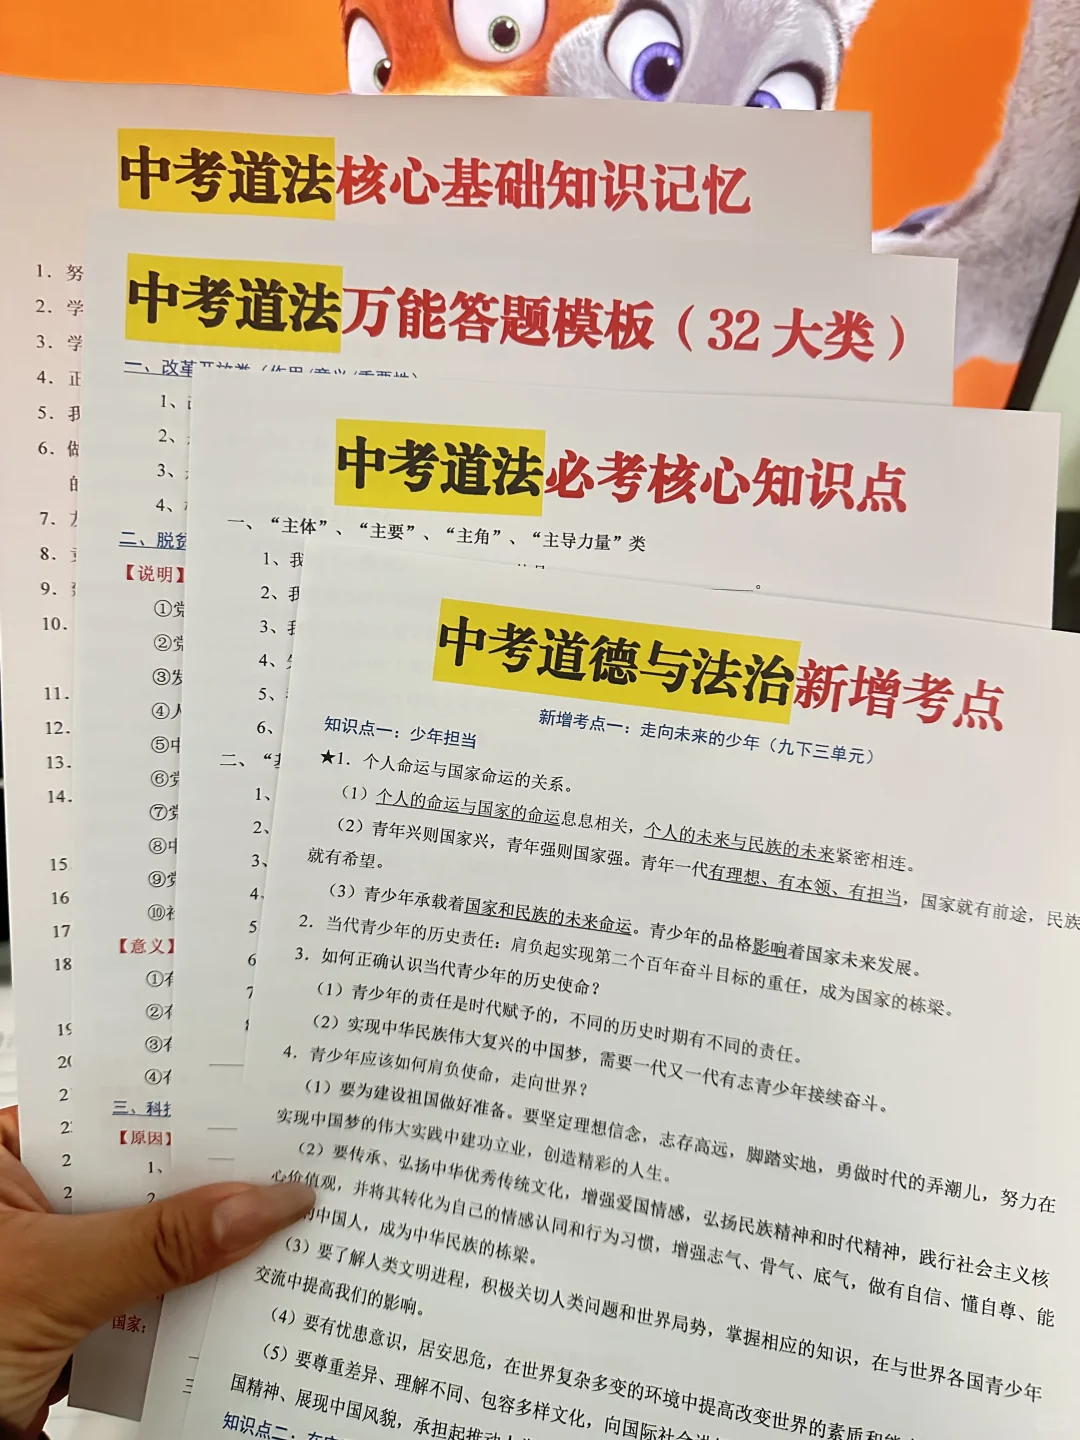 中考道法核心基础知识记忆
1. 努
2. 学
3. 学
4. 正
5. 我
6. 做
的
7.
8.
9.
10.
11.
12.
13.
14.
15
16
17
18
19
20
2
2
2
2
中考道法万能答题模板（32大类）
一、改革开放类（作用/意义/重要性）
1、
2、
3、
4、
二、脱贫
【说明】
①党
②党
③发
④人
⑤中
⑥党
⑦党
⑧中
⑨党
⑩社
【意义】
①有
②有
③有
④有
三、科技
【原因】
1、
2
国家：
中考道法必考核心知识点
一、“主体”、“主要”、“主角”、“主导力量”类
1、我
2、我
3、我
4、
5、
6、
二、“
1、
2、
3、
4、
5
6
7
中考道德与法治新增考点
新增考点一：走向未来的少年（九下三单元）
知识点一：少年担当
★1. 个人命运与国家命运的关系。
（1）个人的命运与国家的命运息息相关，个人的未来与民族的未来紧密相连。
（2）青年兴则国家兴，青年强则国家强。青年一代有理想、有本领、有担当，国家就有前途，民族
就有希望。
（3）青少年承载着国家和民族的未来命运。青少年的品格影响着国家未来发展。
2. 当代青少年的历史责任：肩负起实现第二个百年奋斗目标的重任，成为国家的栋梁。
3. 如何正确认识当代青少年的历史使命？
（1）青少年的责任是时代赋予的，不同的历史时期有不同的责任。
（2）实现中华民族伟大复兴的中国梦，需要一代又一代有志青少年接续奋斗。
4. 青少年应该如何肩负使命，走向世界？
（1）要为建设祖国做好准备。要坚定理想信念，志存高远，脚踏实地，勇做时代的弄潮儿，努力在
实现中国梦的伟大实践中建功立业，创造精彩的人生。
（2）要传承、弘扬中华优秀传统文化，增强爱国情感，弘扬民族精神和时代精神，践行社会主义核
心价值观，并将其转化为自己的情感认同和行为习惯，增强志气、骨气、底气，做有自信、懂自尊、能
的中国人，成为中华民族的栋梁。
（3）要了解人类文明进程，积极关切人类问题和世界局势，掌握相应的知识，在与世界各国青少年
交流中提高我们的影响。
（4）要有忧患意识，居安思危，在世界复杂多变的环境中提高改变世界的素质和能
（5）要尊重差异、理解不同、包容多样文化，向国际社会
国精神、展现中国风貌，承担起推动
知识点二：